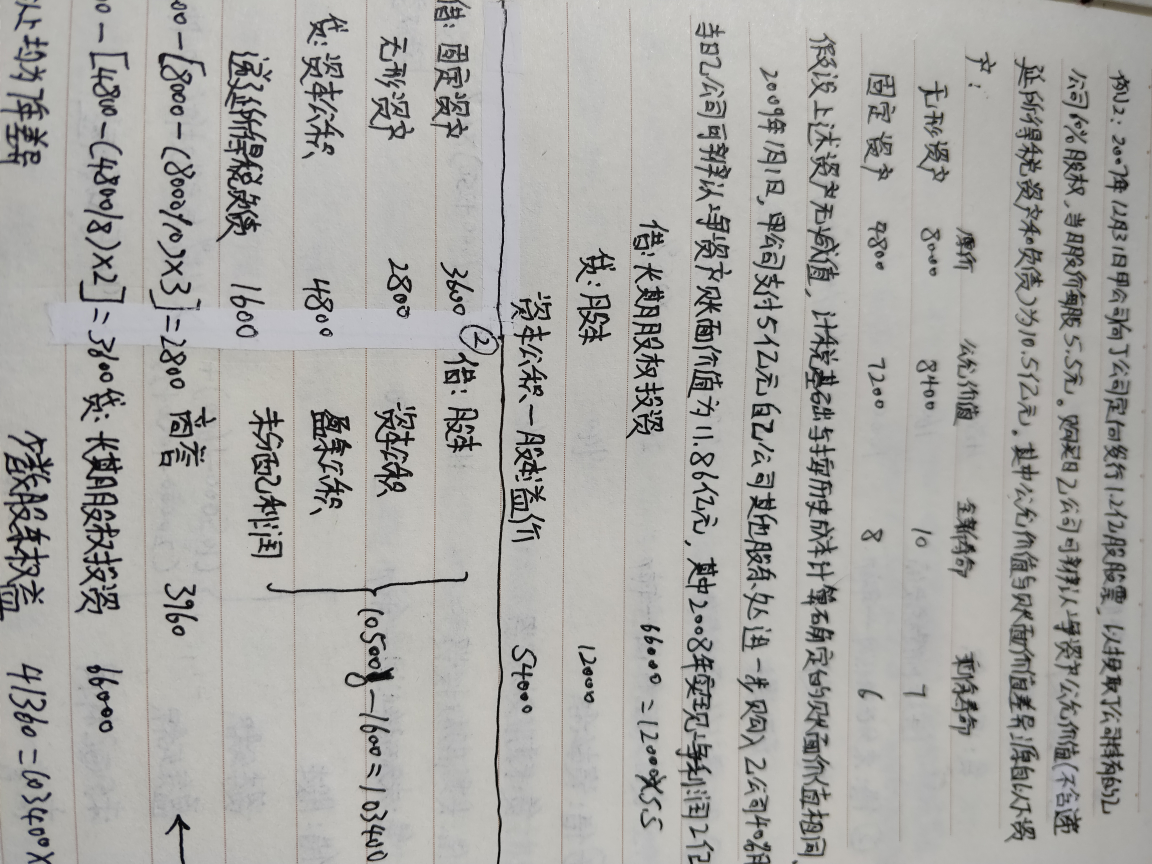 例2：2007年12月31日甲公司向丁公司定向发行1.2亿股股票，以换取丁公司持有的乙
公司60%股权，当日股价每股5.5元。购买日乙公司可辨认净资产公允价值(不含递
延所得税资产和负债)为10.5亿元。其中公允价值与账面价值差异源自以下资
产：
原价 公允价值 全新寿命 剩余寿命
无形资产 8000 8400 10 7
固定资产 4800 7200 8 6
假设上述资产无减值，计税基础与按历史成本计算确定的账面价值相同
2009年1月1日，甲公司支付5亿元自乙公司其他股东处进一步购入乙公司40%股
当日乙公司可辨认净资产账面价值为11.8亿元，其中2008年实现净利润2亿
借：长期股权投资 66000=12000×5.5
贷：股本 12000
资本公积—股本溢价 54000
借：固定资产 3600
无形资产 2800
贷：资本公积 4800
递延所得税负债 1600
00-[8000-(8000/10)×3]=2800
00-[4800-(4800/8)×2]=3600
以上均为库差异
② 借：股本
资本公积
盈余公积
未分配利润
105000-1600=103400
商誉 3960
贷：长期股权投资 66000
少数股东权益 41360=103400×